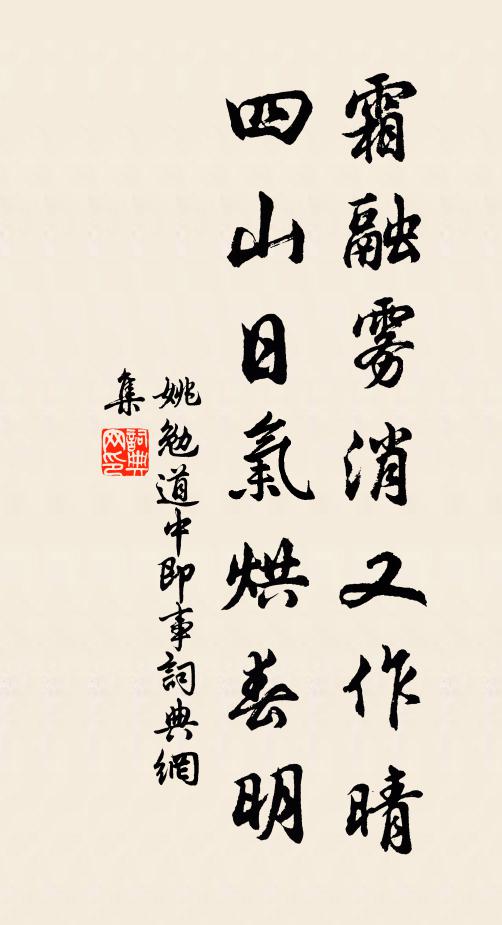 霜融雾消又作晴
四山日氣烘春明
姚勉道中即事詞典網
集
詞典
网印